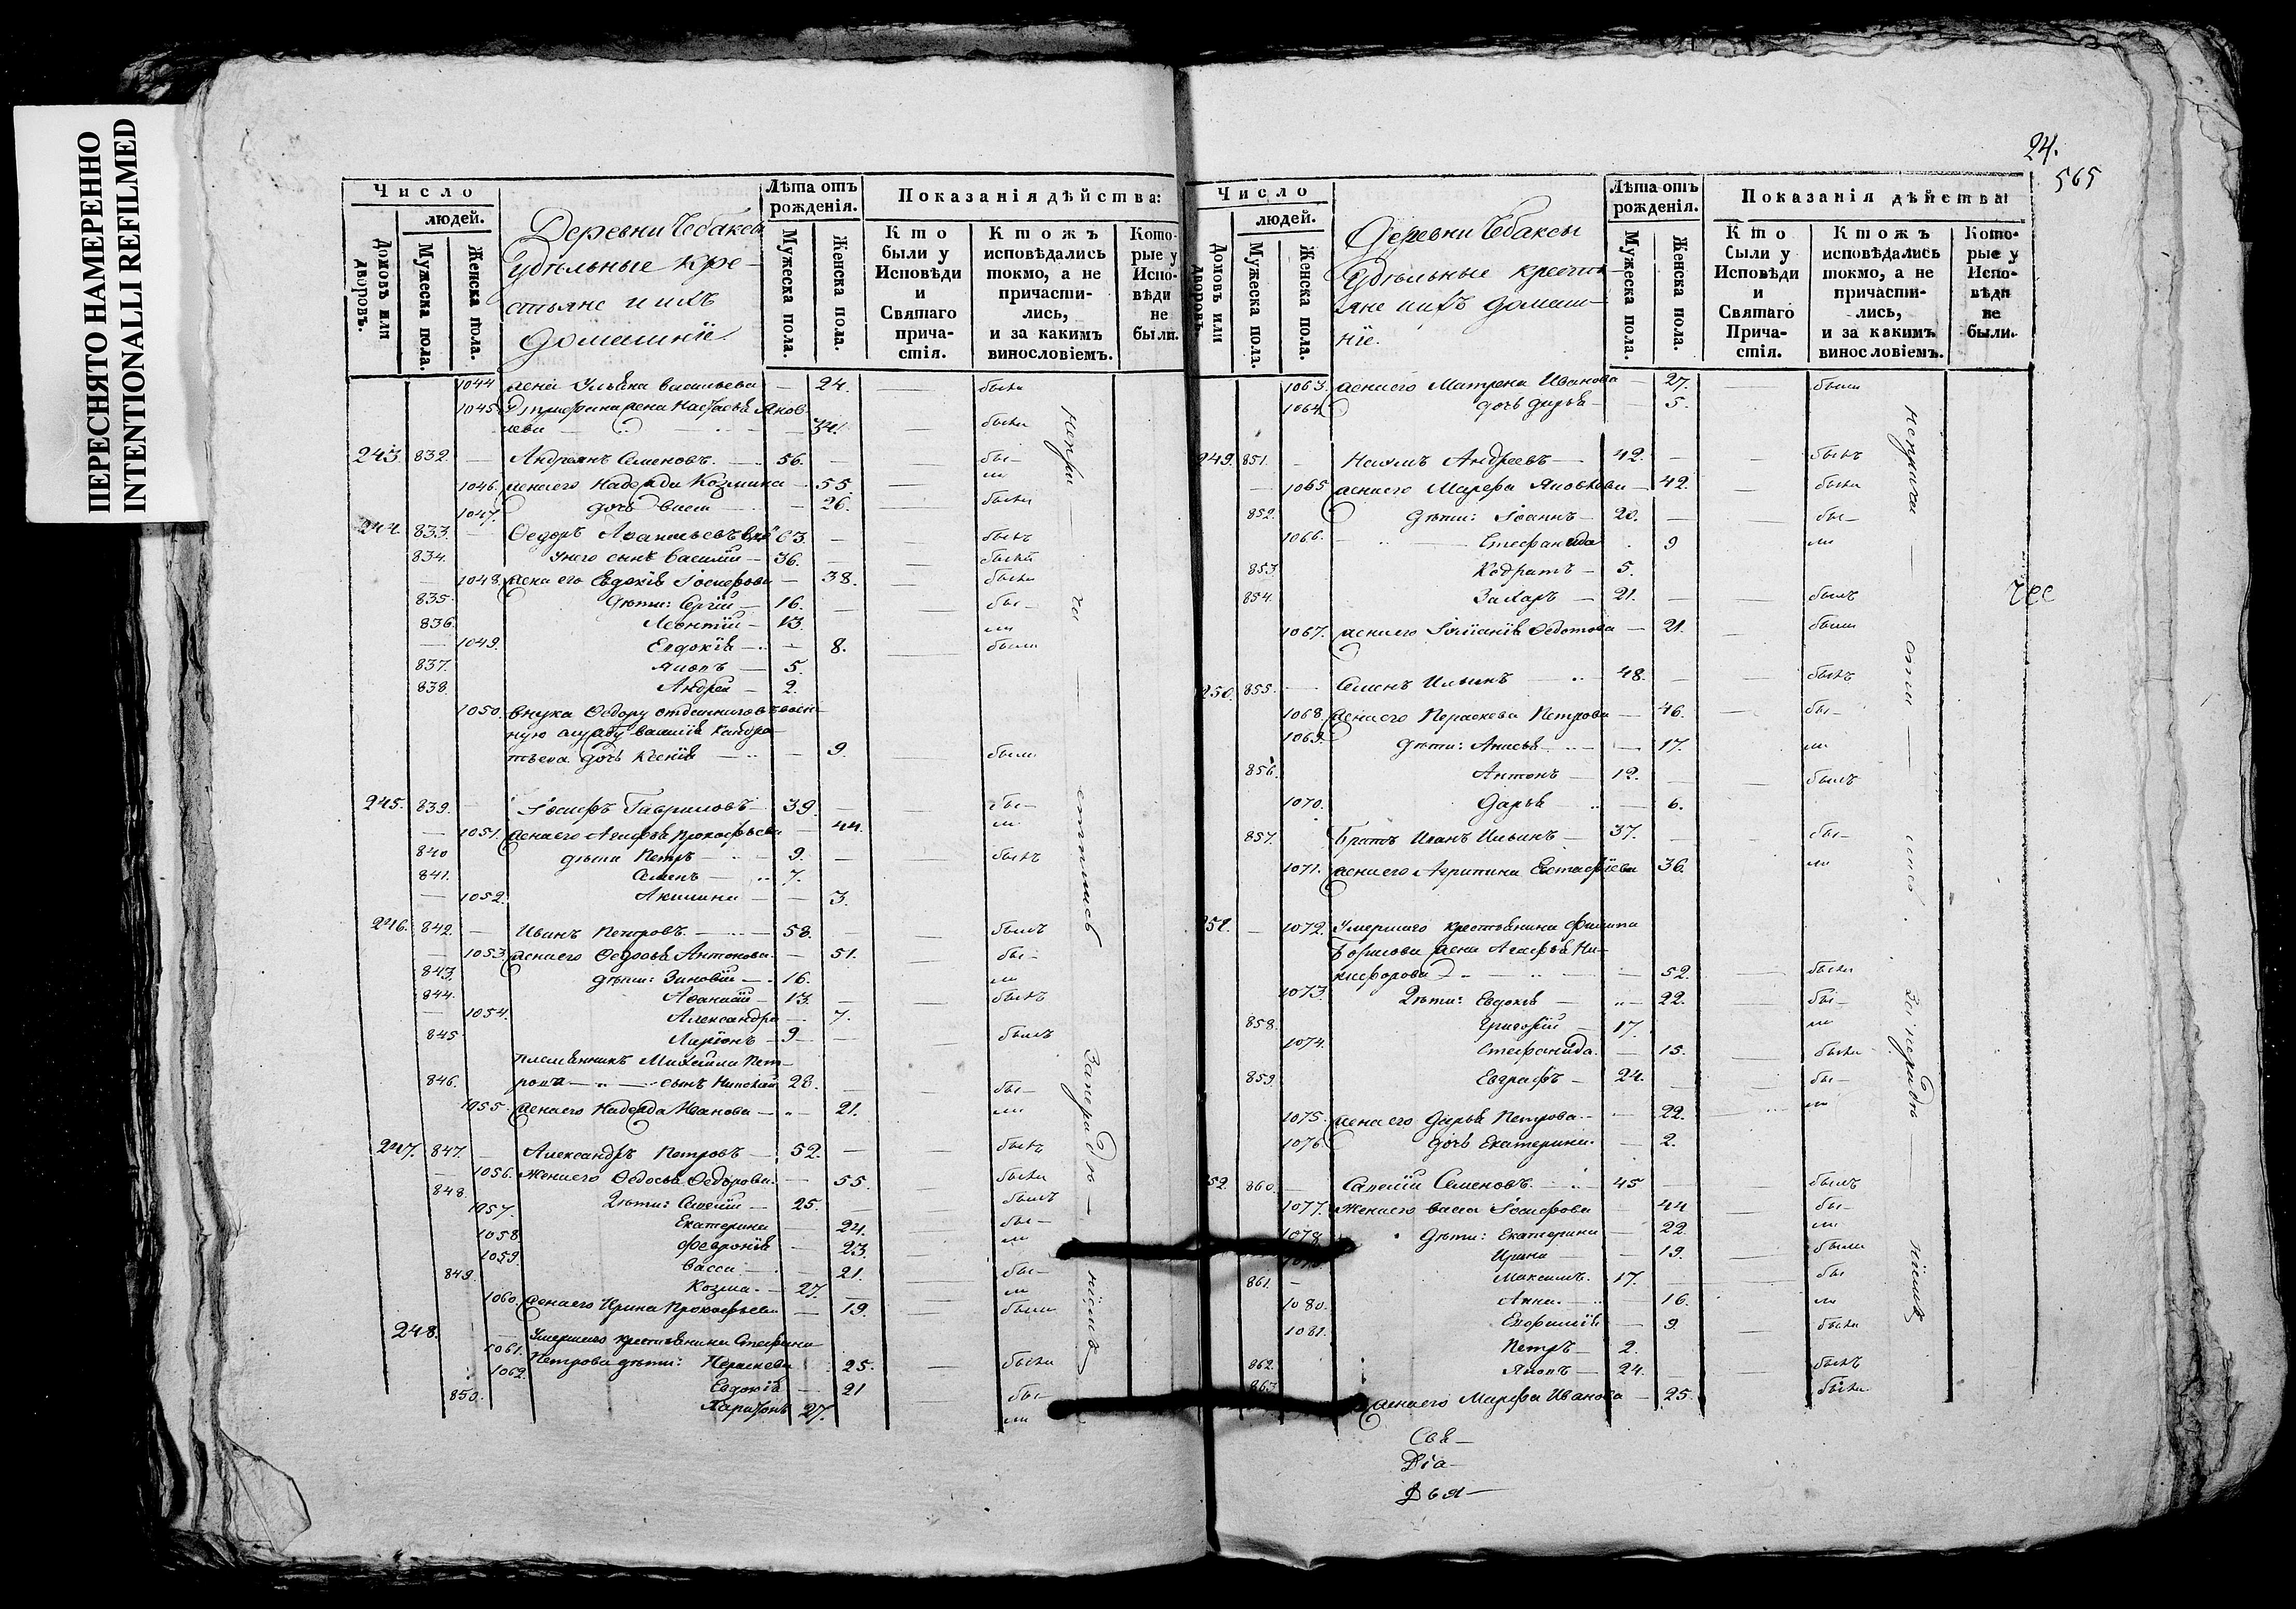 ПЕРЕСНЯТО НАМЕРЕННО
INTENTIONALLI REFILMED
Число
людей.
Домовъ или дворовъ.
Мужеска пола.
Женска пола.
Деревни Чебаксы
Удѣльные кре-
стьяне и ихъ
домашніе
Лѣта отъ рожденія.
Мужеска пола.
Женска пола.
Показанія дѣйства:
Кто были у Исповѣди и Святаго причастія.
Ктожъ исповѣдались токмо, а не причасти-лись, и за какимъ винословіемъ.
Кото-рые у Испо-вѣди не были.
1044 жена Ульяна Васильева — 24. — была
1045 жена Настасья Яков-
лева — 34. — была
243. 832. — Андреянъ Семеновъ. 56. — бы-
1046. жена его Надежда Козмина 55. — ли
1047. дочь Васса — 26. — была
244. 833. — Ѳедоръ 63. — былъ
834. у него сынъ Василій — 36. — былъ
1048. жена его Евдокія Іосифова — 38. — была
835. дѣти: Сергій — 16. — бы-
836. Леонтій — 13. ли
1049. Евдокія — 8. — была
837. Яковъ — 5.
838. Андрей — 2.
1050. внука Ѳедору
ную службу
дочь Ксенія — 9. — была
245. 839. — Іосифъ Гавриловъ 39. — бы-
1051. жена его Агафья Прокофьева — 44. ли
840 дѣти Петръ — 9. — былъ
841. Семенъ — 7.
1052. Акилина — 3.
246. 842. — Иванъ Петровъ — 58. — былъ
1053. жена его Ѳедосья Антонова. — 51. — бы-
843. дѣти: Зиновій — 16. — ли
844. Аѳанасій — 13. — былъ
1054. Александра — 7.
845 Ларіонъ — 9 — былъ
племянникъ Михайла Пет-
846. рова — сынъ Николай 28. — бы-
1055. жена его Надежда Иванова — 21. — ли
247. 847. — Александръ Петровъ — 52. — былъ
1056. Жена его Ѳедосья Ѳедорова. — 55. — была
848. Дѣти: Савелій — 25. — былъ
1057. Екатерина — 24. — бы-
1058. Февронія — 23. — ли
1059. Васса — 21. — бы-
849. Козма. — 27. — ли
1060. жена его Ирина Прокофьева — 19. — была
248. — Умершаго крестьянина Стефана
1061. Петрова дѣти: Параскева 25. — была
1062. Евдокія — 21 — бы-
850. Харитонъ 27. ли
Непри ча — стились Занерад ѣ — ніемъ
24.
565
Число
людей.
Домовъ или дворовъ.
Мужеска пола.
Женска пола.
Деревни Чебаксы
Удѣльные крестья-
яне ихъ домаш-
ніе.
Лѣта отъ рожденія.
Мужеска пола.
Женска пола.
Показанія дѣйства:
Кто были у Исповѣди и Святаго Прича-стія.
Ктожъ исповѣдались токмо, а не причасти-лись, и за какимъ винословіемъ.
Кото-рые у Испо-вѣди не были.
1063. жена его Матрена Иванова — 27. — была
1064. дочь Дарья — 5.
249. 851. — Наумъ Андреевъ — 42. — былъ
1065 жена его Марфа Яковлева — 42. — была
852. дѣти: Іоаннъ — 20. — бы-
1066. Стефанида 9 — ли
853. Кодратъ — 5.
854. Захаръ — 21. — былъ
1067. жена его Іуліанія Ѳедотова — 21. — была
250. 855. — Семенъ Ильинъ — 48. — былъ
1068. жена его Параскева Петрова — 46. — бы-
1069. дѣти: Анисья — 17. ли
856. Антонъ — 12. — былъ
1070. Дарья — 6.
857. Братъ Иванъ Ильинъ — 37. — бы-
1071. жена его Агрипина Евстафіева 36. ли
251. — 1072. Умершаго крестьянина Филипа
Борисова жена Агафья Ни-
кифорова — 52. — была
1073. Дѣти: Евдокія — 22. — бы-
858. Григорій — 17. ли
1074. Стефанида. — 15. — была
859. Евграфъ — 24. — бы-
1075. жена его Дарья Петрова — 22. — ли
1076. дочь Екатерина. — 2.
252. 860. — Савелій Семеновъ. 45 — былъ
1077. Жена его Васса Іосифова — 44 — бы-
1078. Дѣти: Екатерина — 22. ли
Ирина — 19. — была
861. — Максимъ. 17. — бы
1080. Анна. — 16. — ли
1081. Евфимія — 9. — была
862. Петръ — 2.
863. Яковъ — 24. — былъ
жена его Марфа Иванова — 25. — была
Непричи — сти —
нерадѣ — ніемъ
чес
Свя-
Діа-
Дья-